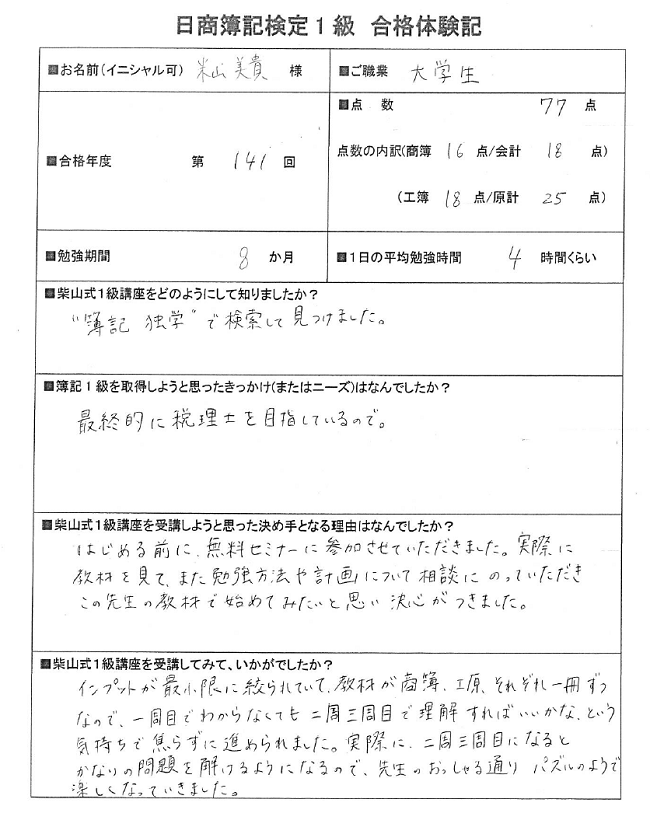 日商簿記検定1級 合格体験記
■お名前(イニシャル可) 米山美貴 様
■ご職業 大学生
■合格年度 第 141 回
■点 数 77 点
点数の内訳(商簿 16 点/会計 18 点)
(工簿 18 点/原計 25 点)
■勉強期間 8 か月
■1日の平均勉強時間 4 時間くらい
■柴山式1級講座をどのようにして知りましたか?
"簿記 独学"で検索して見つけました。
■簿記1級を取得しようと思ったきっかけ(またはニーズ)はなんでしたか?
最終的に税理士を目指しているので。
■柴山式1級講座を受講しようと思った決め手となる理由はなんでしたか?
はじめる前に、無料セミナーに参加させていただきました。実際に
教材を見て、また勉強方法や計画について相談にのっていただき
この先生の教材で始めてみたいと思い決心がつきました。
■柴山式1級講座を受講してみて、いかがでしたか?
インプットが最小限に絞られていて、教材が商簿、工原、それぞれ一冊ずつ
なので、一周目でわからなくても二周三周目で理解すればいいかな、という
気持ちで焦らずに進められました。実際に、二周三周目になると
かなりの問題を解けるようになるので、先生のおっしゃる通りパズルのようで
楽しくなっていきました。